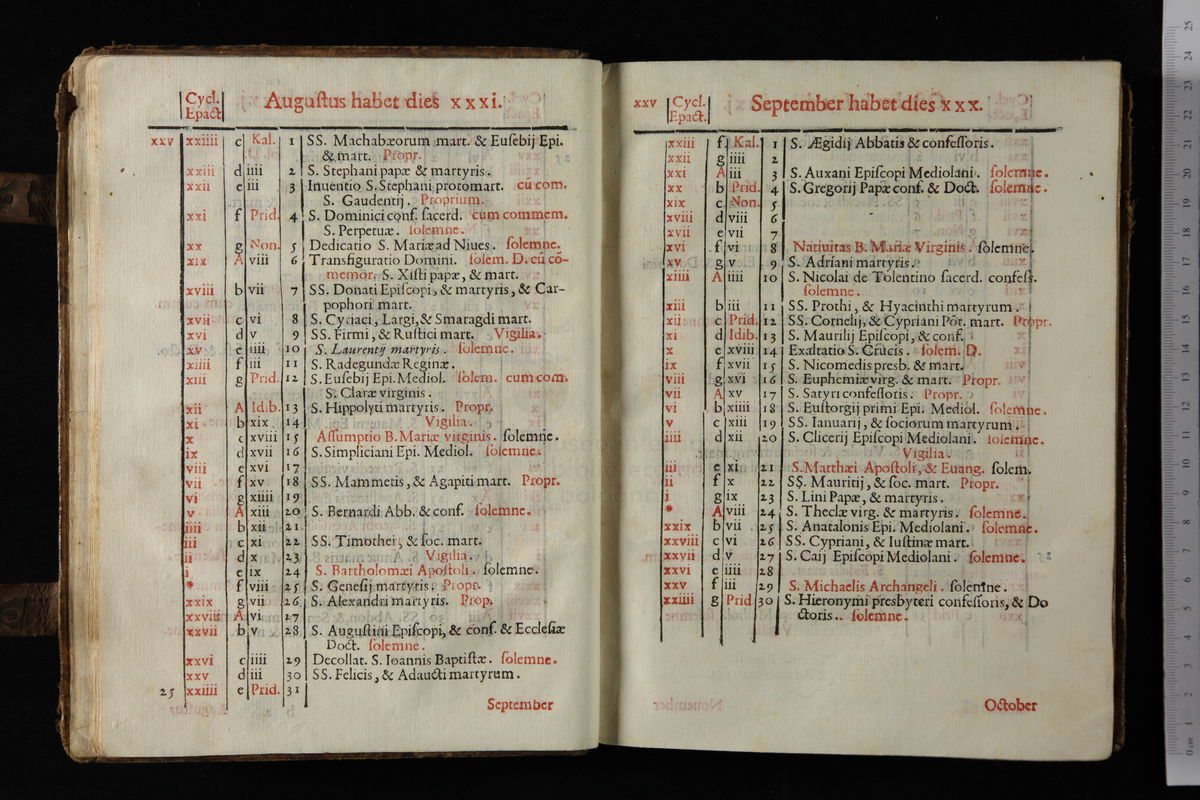 Cycl. Epact. Auguſtus habet dies xxxi.
xxv xxiiii c Kal. 1 SS. Machabæorum mart. & Euſebij Epi.
& mart. Propr.
xxiii d iiii 2 S. Stephani papæ & martyris.
xxii e iii 3 Inuentio S. Stephani protomart. cū com.
S. Gaudentij. Proprium.
xxi f Prid. 4 S. Dominici conf. ſacerd. cum commem.
S. Perpetuæ. ſolemne.
xx g Non. 5 Dedicatio S. Mariæ ad Niues. ſolemne.
xix A viii 6 Transfiguratio Domini. ſolem. D. cū cō-
memor. S. Xiſti papæ, & mart.
xviii b vii 7 SS. Donati Epiſcopi, & martyris, & Car-
pophori mart.
xvii c vi 8 S. Cyriaci, Largi, & Smaragdi mart.
xvi d v 9 SS. Firmi, & Ruſtici mart. Vigilia.
xv e iiii 10 S. Laurentij martyris. ſolemne.
xiiii f iii 11 S. Radegundæ Reginæ.
xiii g Prid. 12 S. Euſebij Epi. Mediol. ſolem. cum com.
S. Claræ virginis.
xii A Idib. 13 S. Hippolyti martyris. Propr.
xi b xix 14 Vigilia.
x c xviii 15 Aſſumptio B. Mariæ virginis. ſolemne.
ix d xvii 16 S. Simpliciani Epi. Mediol. ſolemne.
viii e xvi 17
vii f xv 18 SS. Mammetis, & Agapiti mart. Propr.
vi g xiiii 19
v A xiii 20 S. Bernardi Abb. & conf. ſolemne.
iiii b xii 21
iii c xi 22 SS. Timothei, & ſoc. mart.
ii d x 23 Vigilia.
i e ix 24 S. Bartholomæi Apoſtoli. ſolemne.
* f viii 25 S. Geneſij martyris. Propr.
xxix g vii 26 S. Alexandri martyris. Prop.
xxviii A vi 27
xxvii b v 28 S. Auguſtini Epiſcopi, & conf. & Eccleſiæ
Doct. ſolemne.
xxvi c iiii 29 Decollat. S. Ioannis Baptiſtæ. ſolemne.
xxv d iii 30 SS. Felicis, & Adaucti martyrum.
25 xxiiii e Prid. 31
September
xxv Cycl. Epact. September habet dies xxx.
xxiii f Kal. 1 S. Ægidij Abbatis & confeſſoris.
xxii g iiii 2
xxi A iii 3 S. Auxani Epiſcopi Mediolani. ſolemne.
xx b Prid. 4 S. Gregorij Papæ conf. & Doct. ſolemne.
xix c Non. 5
xviii d viii 6
xvii e vii 7
xvi f vi 8 Natiuitas B. Mariæ Virginis. ſolemne.
xv g v 9 S. Adriani martyris.
xiiii A iiii 10 S. Nicolai de Tolentino ſacerd. confeſſ.
ſolemne.
xiii b iii 11 SS. Prothi, & Hyacinthi martyrum.
xii c Prid. 12 SS. Cornelij, & Cypriani Pōt. mart. Propr.
xi d Idib. 13 S. Maurilij Epiſcopi, & conf.
x e xviii 14 Exaltatio S. Crucis. ſolem. D.
ix f xvii 15 S. Nicomedis presb. & mart.
viii g xvi 16 S. Euphemiæ virg. & mart. Propr.
vii A xv 17 S. Satyri confeſſoris. Propr.
vi b xiiii 18 S. Euſtorgij primi Epi. Mediol. ſolemne.
v c xiii 19 SS. Ianuarij, & ſociorum martyrum.
iiii d xii 20 S. Clicerij Epiſcopi Mediolani. ſolemne.
Vigilia.
iii e xi 21 S. Matthæi Apoſtoli, & Euang. ſolem.
ii f x 22 SS. Mauritij, & ſoc. mart. Propr.
i g ix 23 S. Lini Papæ, & martyris.
* A viii 24 S. Theclæ virg. & martyris. ſolemne.
xxix b vii 25 S. Anatalonis Epi. Mediolani. ſolemne.
xxviii c vi 26 SS. Cypriani, & Iuſtinæ mart.
xxvii d v 27 S. Caij Epiſcopi Mediolani. ſolemne.
xxvi e iiii 28
xxv f iii 29 S. Michaelis Archangeli. ſolemne.
xxiiii g Prid 30 S. Hieronymi presbyteri confeſſoris, & Do
ctoris. ſolemne.
October